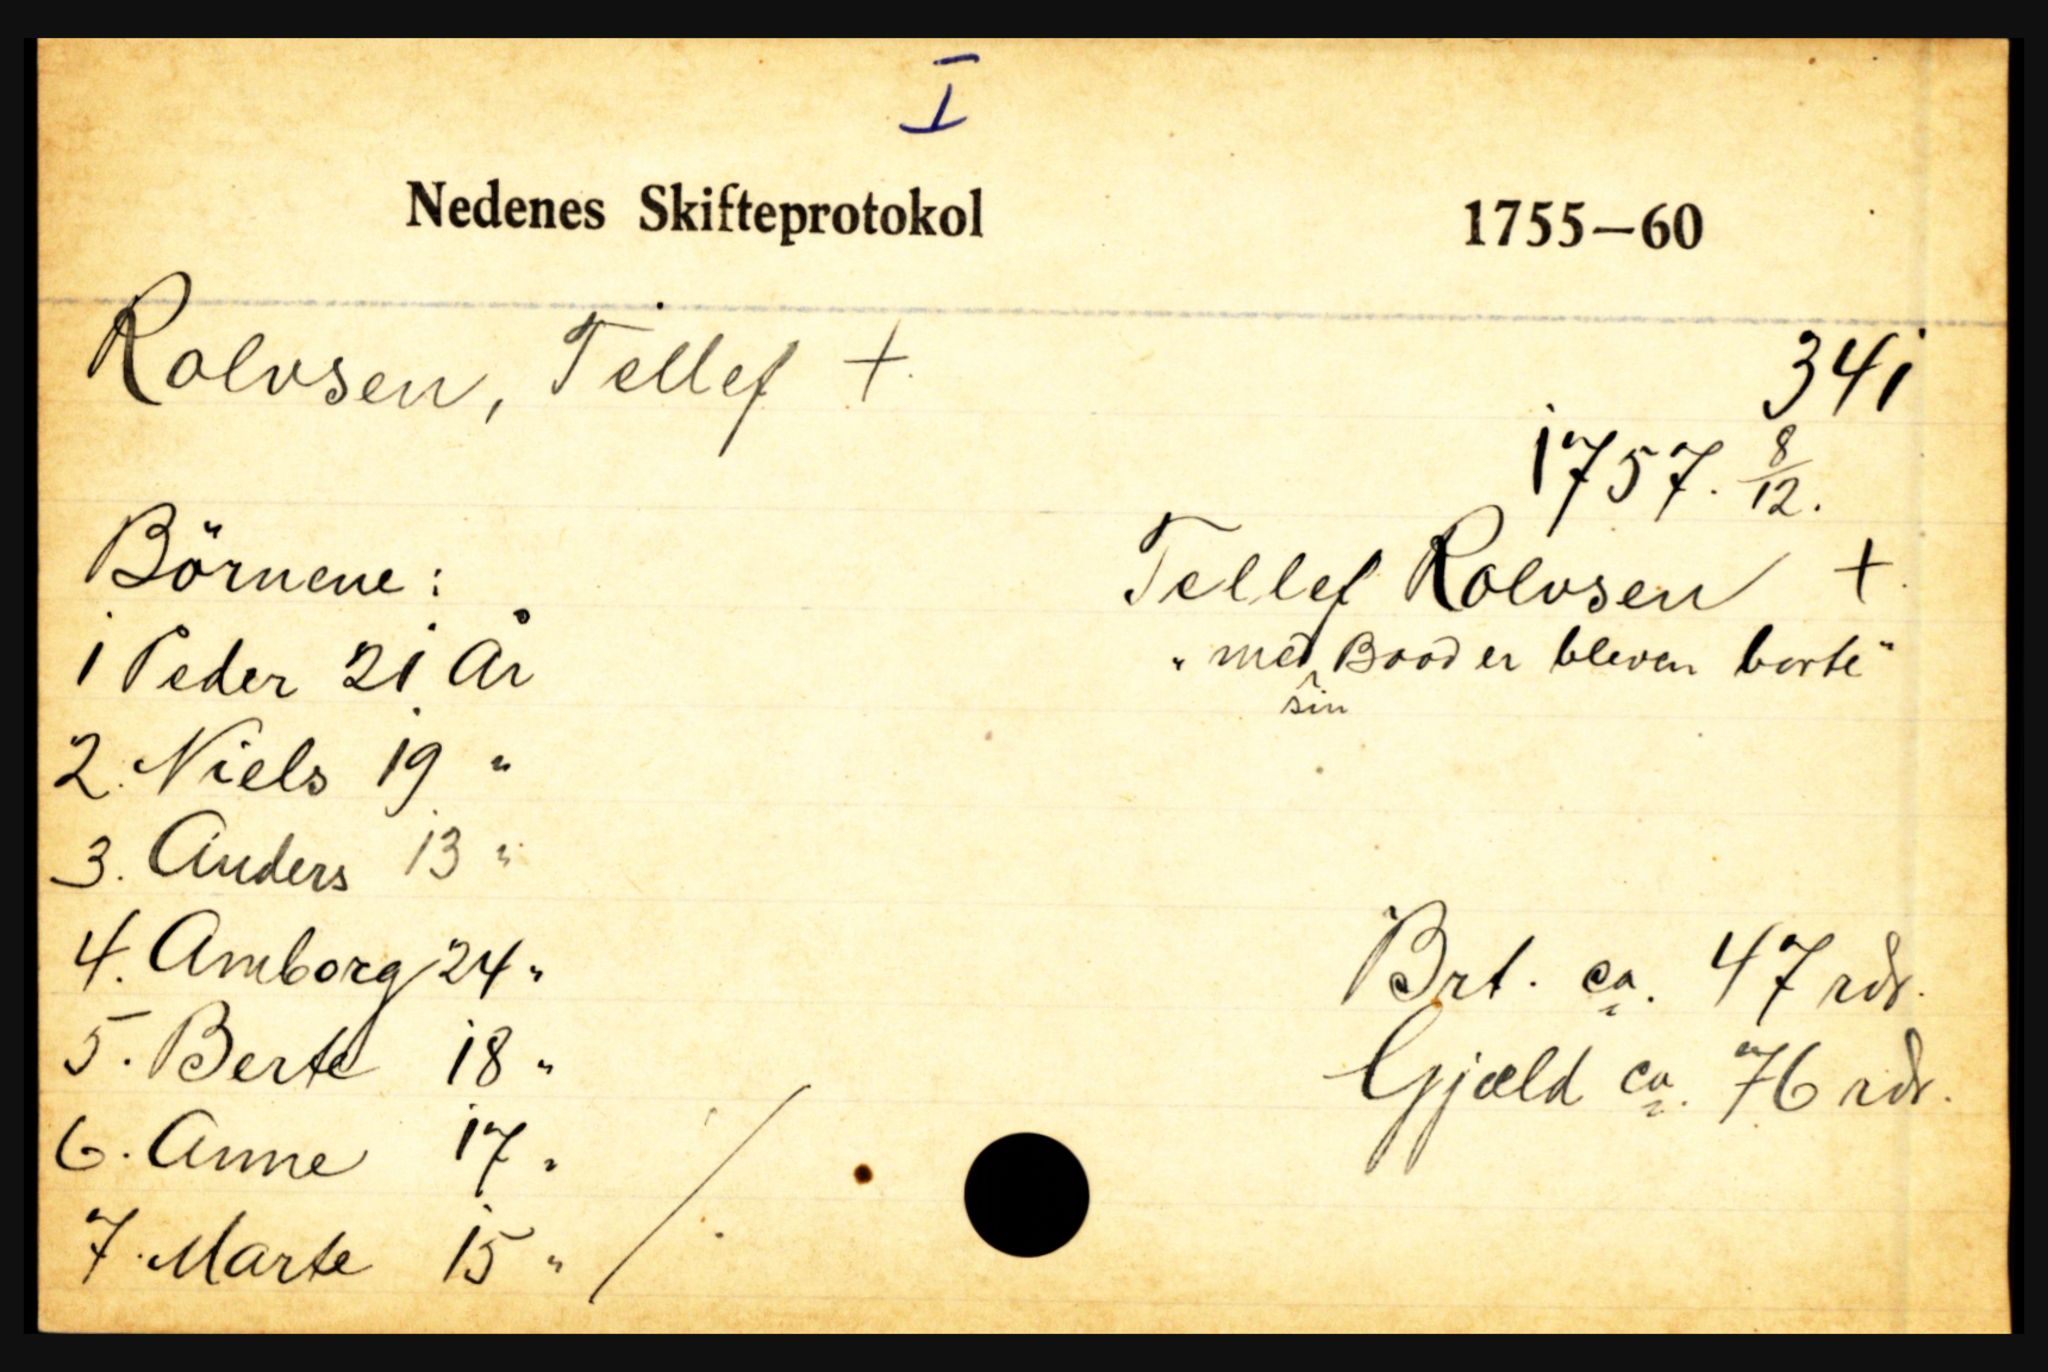 I
Nedenes Skifteprotokol 1755—60
Rolvsen, Tellef +.
341
1757. 8/12.
Börnene:
Tellef Rolvsen +.
1 Peder 21 År
"med sin Baad er bleven borte"
2. Niels 19 "
3. Anders 13 "
4. Amborg 24 "
Brt. ca. 47 rdr.
5. Berte 18 "
Gjæld ca. 76 rdr.
6. Anne 17 "
7. Marte 15 "